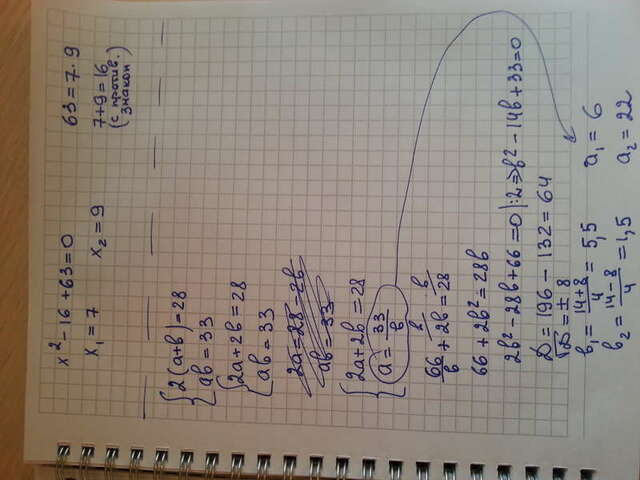 x² - 16 + 63 = 0    63 = 7 · 9
x₁ = 7    x₂ = 9    7 + 9 = 16
(с против. знаком)
{ 2(a+b) = 28
{ ab = 33
{ 2a + 2b = 28
{ ab = 33
2a = 28 - 2b
ab = 33
{ 2a + 2b = 28
{ a = 33/b
66/b + 2b = 28
66 + 2b² = 28b
2b² - 28b + 66 = 0 |:2 ⇒ b² - 14b + 33 = 0
D = 196 - 132 = 64
√D = ± 8
b₁ = (14+8)/4 = 5,5    a₁ = 6
b₂ = (14-8)/4 = 1,5    a₂ = 22